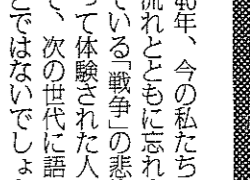 40年、今の私たち
流れとともに忘れ
ている「戦争」の悲
って体験された人
て、次の世代に語
とではないでしょ